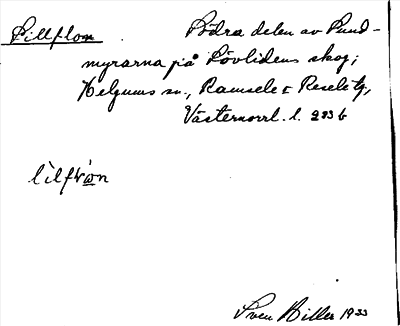 Lillflon Södra delen av Rund-
myrarna på Lövlidens skog;
Helgums sn., Ramsele & Resele tg,
Västernorrl. l. 283 b
Sven Hiller 1933